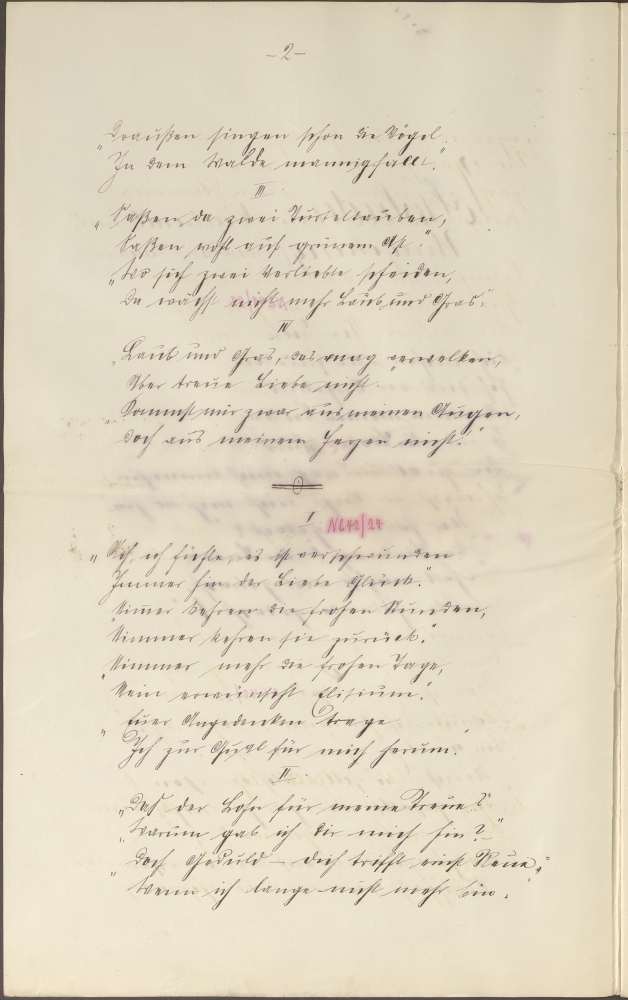 - 2 -
"Draußen singen schon die Vögel
In dem Walde mannigfalt."
III
"Saßen da zwei Turteltauben,
Saßen wohl auf grünem Ast."
"Wo sich zwei Verliebte scheiden,
Da wächst nicht mehr Laub und Gras."
IV
"Laub und Gras, das mag verwelken,
Aber treue Liebe nicht."
"Kommst mir zwar aus meinen Augen,
Doch aus meinem Herzen nicht!"
I NC42/24
"Ach, ich fühle, es ist verschwunden
Immer hin der Liebe Glück."
"Nimmer kehren die frohen Stunden,
Nimmer kehren sie zurück."
"Nimmer mehr die frohen Tage,
Mein erwünscht Elisium."
"Euer Angedenken trage
Ich zur Qual für mich herum."
II
"Das der Lohn für meine Treue?"
"Warum gab ich dir mich hin?"
"Doch Geduld - dich trifft einst Reue,"
"Wenn ich lange nicht mehr bin.